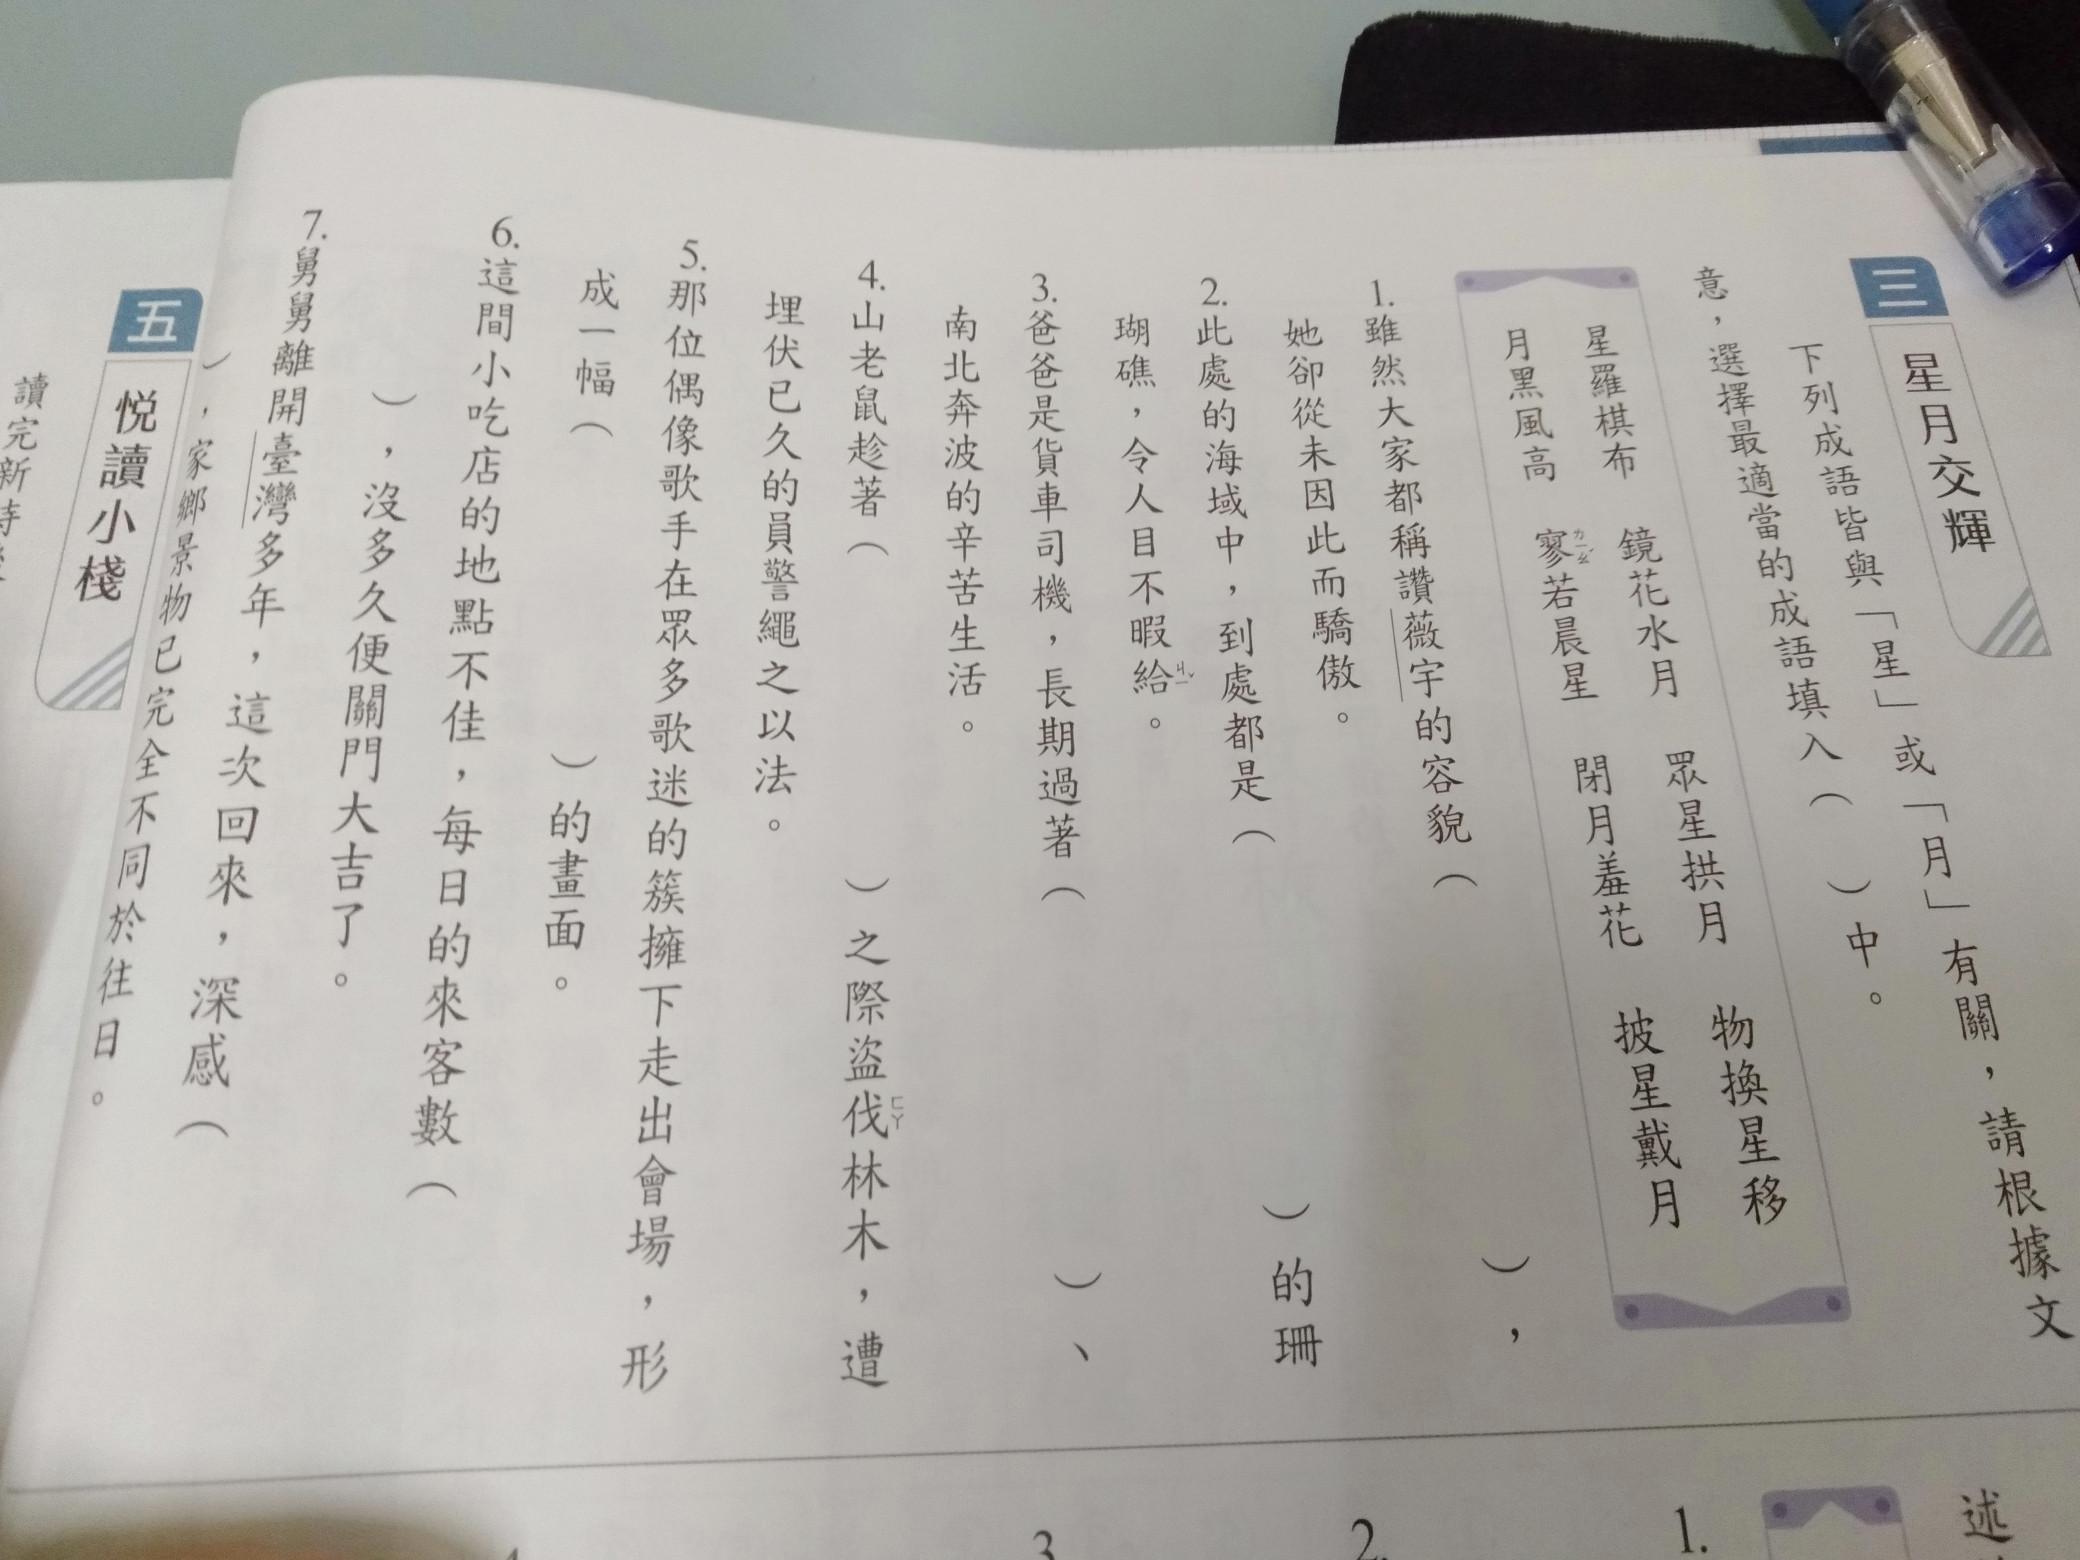 三 星月交輝
下列成語皆與「星」或「月」有關，請根據文
意，選擇最適當的成語填入（ ）中。
星羅棋布 鏡花水月 眾星拱月 物換星移
月黑風高 寥ㄌㄧㄠˊ若晨星 閉月羞花 披星戴月
1. 雖然大家都稱讚薇宇的容貌（ ），
她卻從未因此而驕傲。
2. 此處的海域中，到處都是（ ）的珊
瑚礁，令人目不暇給ㄐㄧˇ。
3. 爸爸是貨車司機，長期過著（ ）、
南北奔波的辛苦生活。
4. 山老鼠趁著（ ）之際盜伐ㄈㄚ林木，遭
埋伏已久的員警繩之以法。
5. 那位偶像歌手在眾多歌迷的簇擁下走出會場，形
成一幅（ ）的畫面。
6. 這間小吃店的地點不佳，每日的來客數（
），沒多久便關門大吉了。
7. 舅舅離開臺灣多年，這次回來，深感（
），家鄉景物已完全不同於往日。
五 悦讀小棧
讀完新詩
述
1.
2.
3